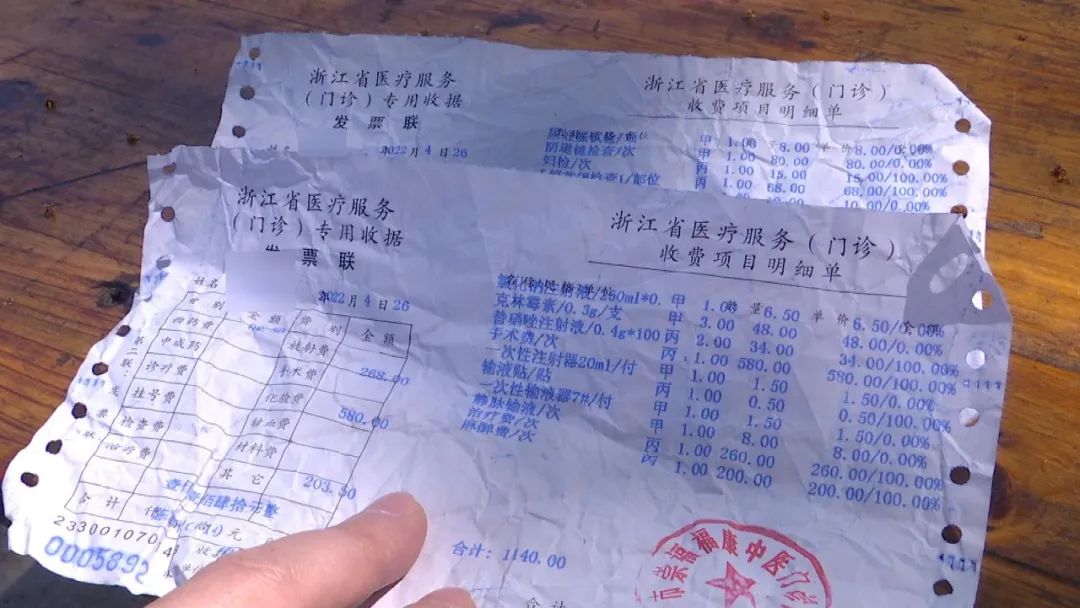 浙江省医疗服务
（门诊）专用收据
发票联
2022年4月26
浙江省医疗服务（门诊）
收费项目明细单
甲 1.00 8.00 8.00/0.00%
阴道镜检查/次 甲 1.00 80.00 80.00/0.00%
妇检/次 丙 1.00 15.00 15.00/100.00%
丙 1.00 68.00 68.00/100.00%
浙江省医疗服务
（门诊）专用收据
发票联
姓名
2022年4月26
金额 类别 金额
西药费 放射费
中成药 手术费 268.00
诊疗费 化验费
挂号费 输血费 580.00
检查费 材料费
治疗费 其它 203.50
合计
233001070
0005892
浙江省医疗服务（门诊）
收费项目明细单
氯化钠注射液/250ml*0. 甲 1.00 6.50 6.50/0.00%
克林霉素/0.3g/支 甲 3.00 48.00 48.00/0.00%
替硝唑注射液/0.4g*100 丙 2.00 34.00 34.00/100.00%
手术费/次 丙 1.00 580.00 580.00/100.00%
一次性注射器20ml/付 甲 1.00 1.50 1.50/0.00%
输液贴/贴 丙 1.00 0.50 0.50/100.00%
一次性输液器7#/付 甲 1.00 1.50 1.50/0.00%
静脉输液/次 甲 1.00 8.00 8.00/0.00%
治疗费/次 丙 1.00 260.00 260.00/100.00%
麻醉费/次 丙 1.00 200.00 200.00/100.00%
合计：1140.00
福康中医门诊
合计